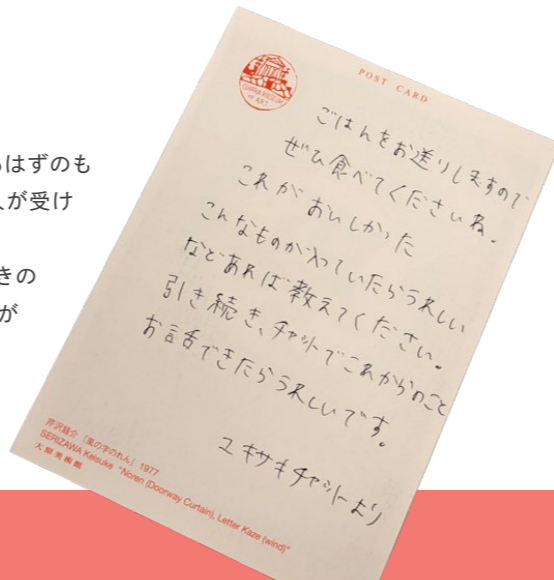 るはずのも
人が受け
きの
が
POST CARD
OHARA MUSEUM
of ART
ごはんをお送りしますので
ぜひ食べてくださいね。
これが おいしかった
こんなものが入っていたらうれしい
などあれば教えてください。
引き続き、チャットでこれからのこと
お話できたらうれしいです。
ユキサキチャットより
芹沢銈介 「風の字のれん」 1977
SERIZAWA Keisuke "Noren (Doorway Curtain), Letter Kaze (wind)"
大原美術館